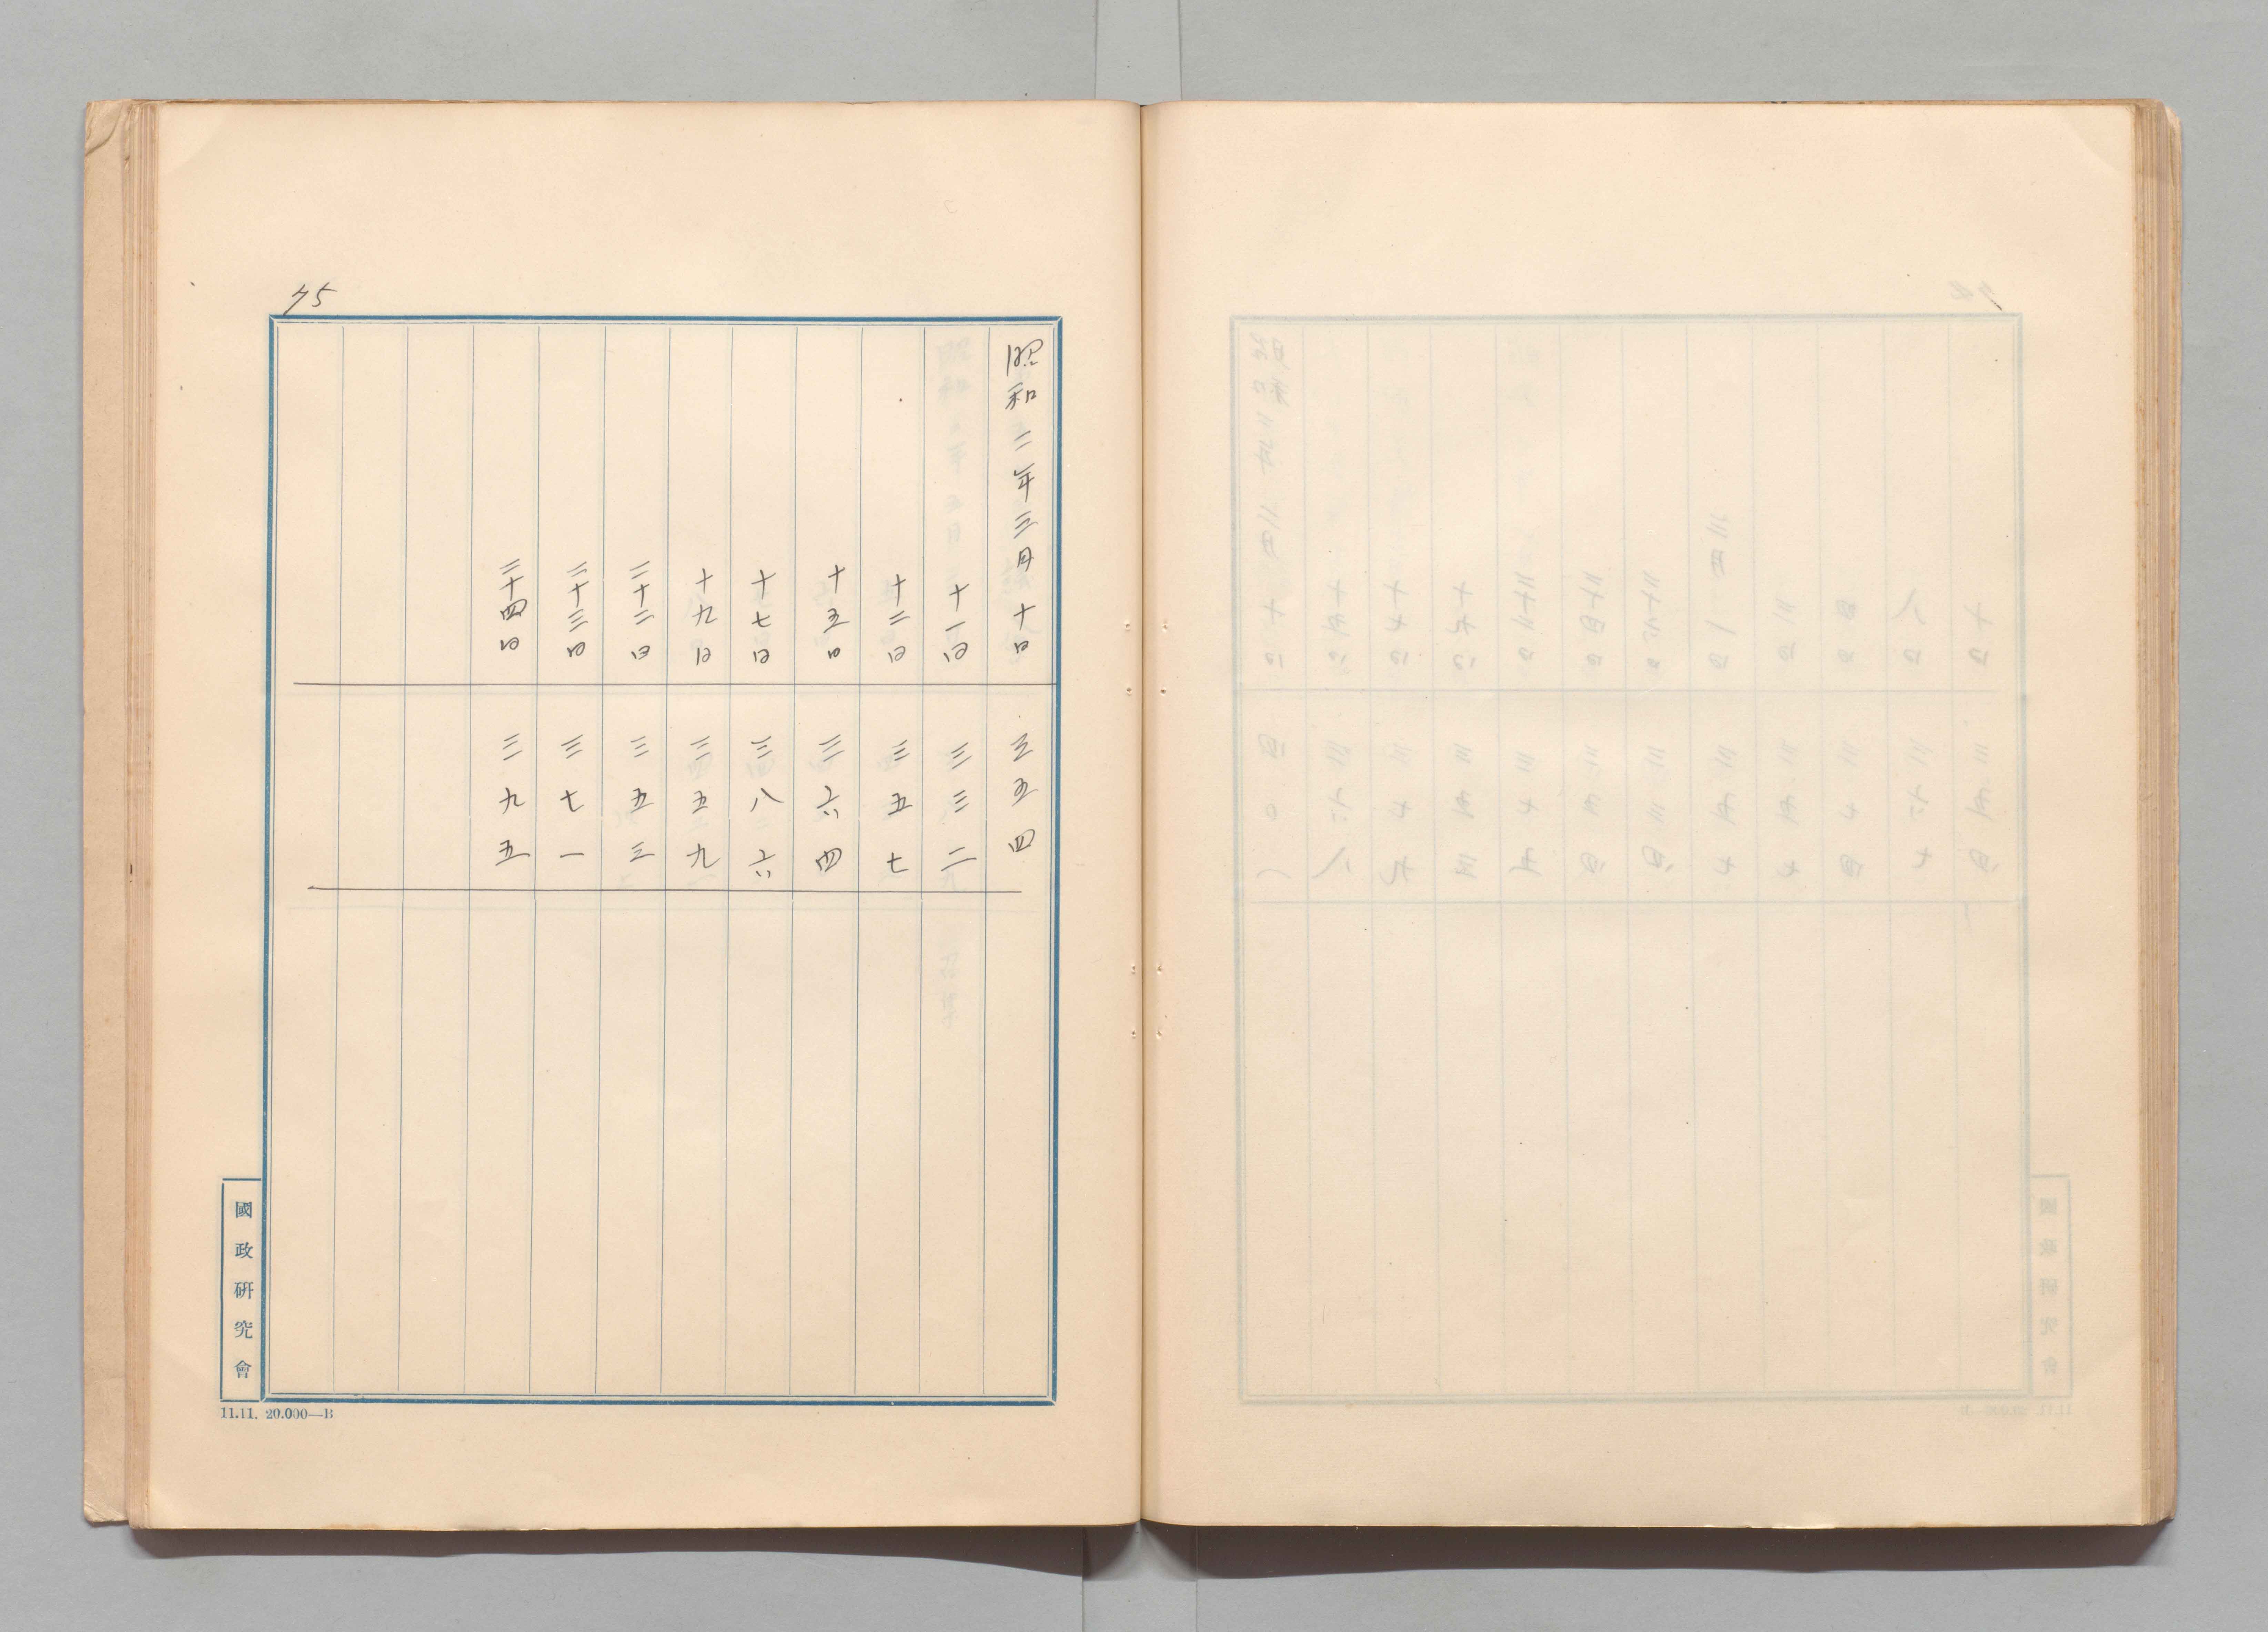 75
昭和二年三月十日 三五四
十一日 三三二
十二日 三五七
十五日 三六四
十七日 三八六
十九日 三五九
二十二日 三五三
二十三日 三七一
二十四日 三九五
國政研究會
11.11. 20.000—B